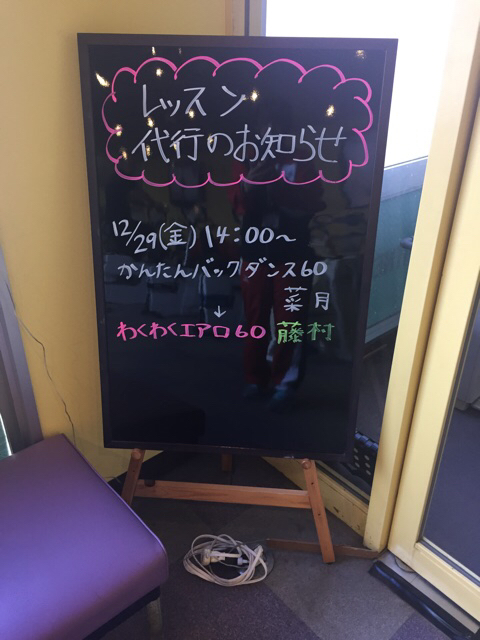 レッスン
代行のお知らせ
12/29(金) 14:00〜
かんたんバックダンス60
菜月
↓
わくわくエアロ60 藤村